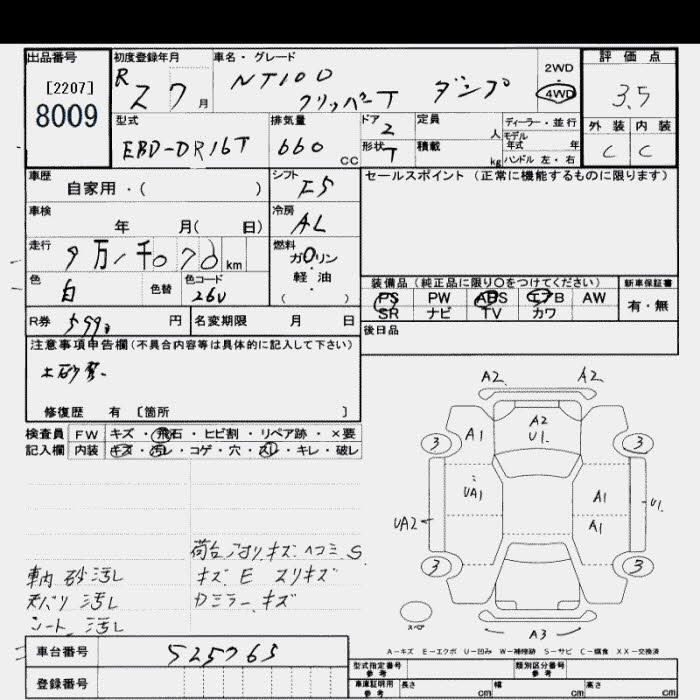 出品番号
[2207]
8009
初度登録年月
R 2 7 月
車名・グレード
NT100
クリッパーT ダンプ
2WD
4WD
評価点
3.5
外装 内装
C C
型式
EBD-DR16T
排気量
660 CC
ドア 2
形状 T
定員 人
積載 kg
ディーラー・並行
モデル
年式 年
ハンドル 左・右
車歴
自家用・( )
シフト
F5
セールスポイント(正常に機能するものに限ります)
車検
年 月( 日)
冷房
AL
走行
9万1千070 km
燃料
ガソリン
・
軽油
( )
色
白
色替
色コード
26U
装備品(純正品に限り○をつけてください)
新車保証書
PS PW ABS エアB AW
SR ナビ TV カワ
有・無
R券
円
名変期限 月 日
後日品
注意事項申告欄(不具合内容等は具体的に記入して下さい)
修復歴 有 [箇所 ]
検査員 FW キズ・飛石・ヒビ割・リペア跡・×要
記入欄 内装 キズ・汚レ・コゲ・穴・スレ・キレ・破レ
A2 A2
A1
A2
U1
3 3
UA1
A1
A1
U1
UA2
3 3
A3
スペア
荷台アオリキズヘコミS
車内 砂汚レ
キズ E スリキズ
天バリ 汚レ
カミラーキズ
シート 汚レ
A-キズ E-エクボ U-凹み W-補修跡 S-サビ C-腐食 XX-交換済
車台番号
525765
登録番号
型式指定番号
参考
類別区分番号
参考
車庫証明用
参考
長さ cm
幅 cm
高さ cm